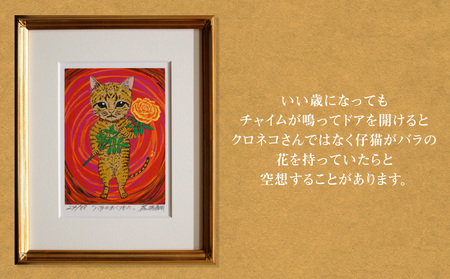 いい歳になっても
チャイムが鳴ってドアを開けると
クロネコさんではなく仔猫がバラの
花を持っていたらと
空想することがあります。